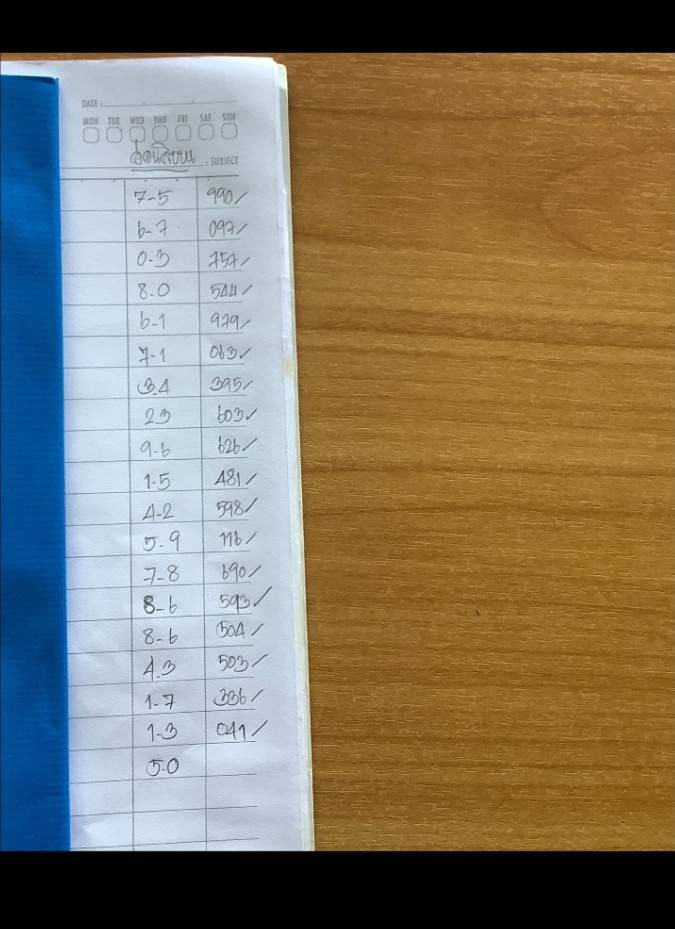 DATE :
MON TUE WED THU FRI SAT SUN
: SUBJECT
7-5 990✓
6-7 097✓
0-3 757✓
8-0 544✓
6-1 979✓
7-1 063✓
3.4 395✓
23 603✓
9-6 626✓
1-5 481✓
4-2 598✓
5-9 116✓
7-8 690✓
8-6 593✓
8-6 504✓
4.3 503✓
1-7 336✓
1-3 041✓
5-0